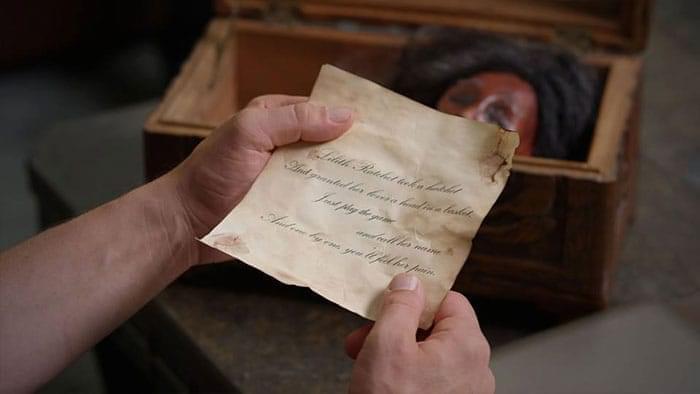 Lilith Ratchet took a hatchet
And granted her lover a head in a basket.
Just play the game
and call her name
And one by one, you'll feel her pain.